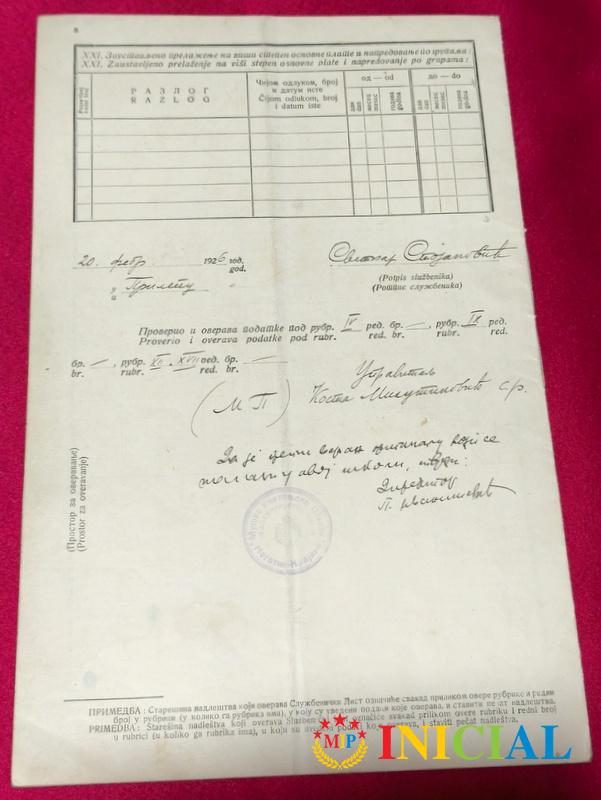 8
XXI. Заустављено прелажење на виши степен основне плате и напредовање по групама:
XXI. Zaustavljeno prelaženje na viši stepen osnovne plate i napredovanje po grupama:
РАЗЛОГ
RAZLOG
Чијом одлуком, број
и датум исте
Čijom odlukom, broj
i datum iste
од — od
до — do
дан
dan
месец
mesec
година
godina
дан
dan
месец
mesec
година
godina
20. фебр. 1926 год.
god.
у Прилепу
u
Светозар Стојановић
(Potpis službenika)
(Потпис службеника)
Проверио и оверава податке под рубр. IV ред. бр. — , рубр. IX ред.
Proverio i overava podatke pod rubr. red. br. rubr. red.
бр. — , рубр. XII и XVII ред. бр. —
br. rubr. red. br.
Управитељ
(М П) Коста Милутиновић с.р.
Да је препис веран оригиналу који се
налази у овој школи,
Директор
П.
(Простор за оверавање)
(Prostor za overavanje)
ПРИМЕДБА: Старешина надлештва који оверава Службенички Лист означиће свакад приликом овере рубрике и редни
број у рубрици (у колико га рубрика има), у коју су уведени подаци које оверава, и ставити печат надлештва.
PRIMEDBA: Starešina nadleštva koji overava Službenički List označiće svakad prilikom overe rubriku i redni broj
u rubrici (u koliko ga rubrika ima), u koju su uvedeni podatci koje overava, i staviti pečat nadleštva.
MP INICIAL